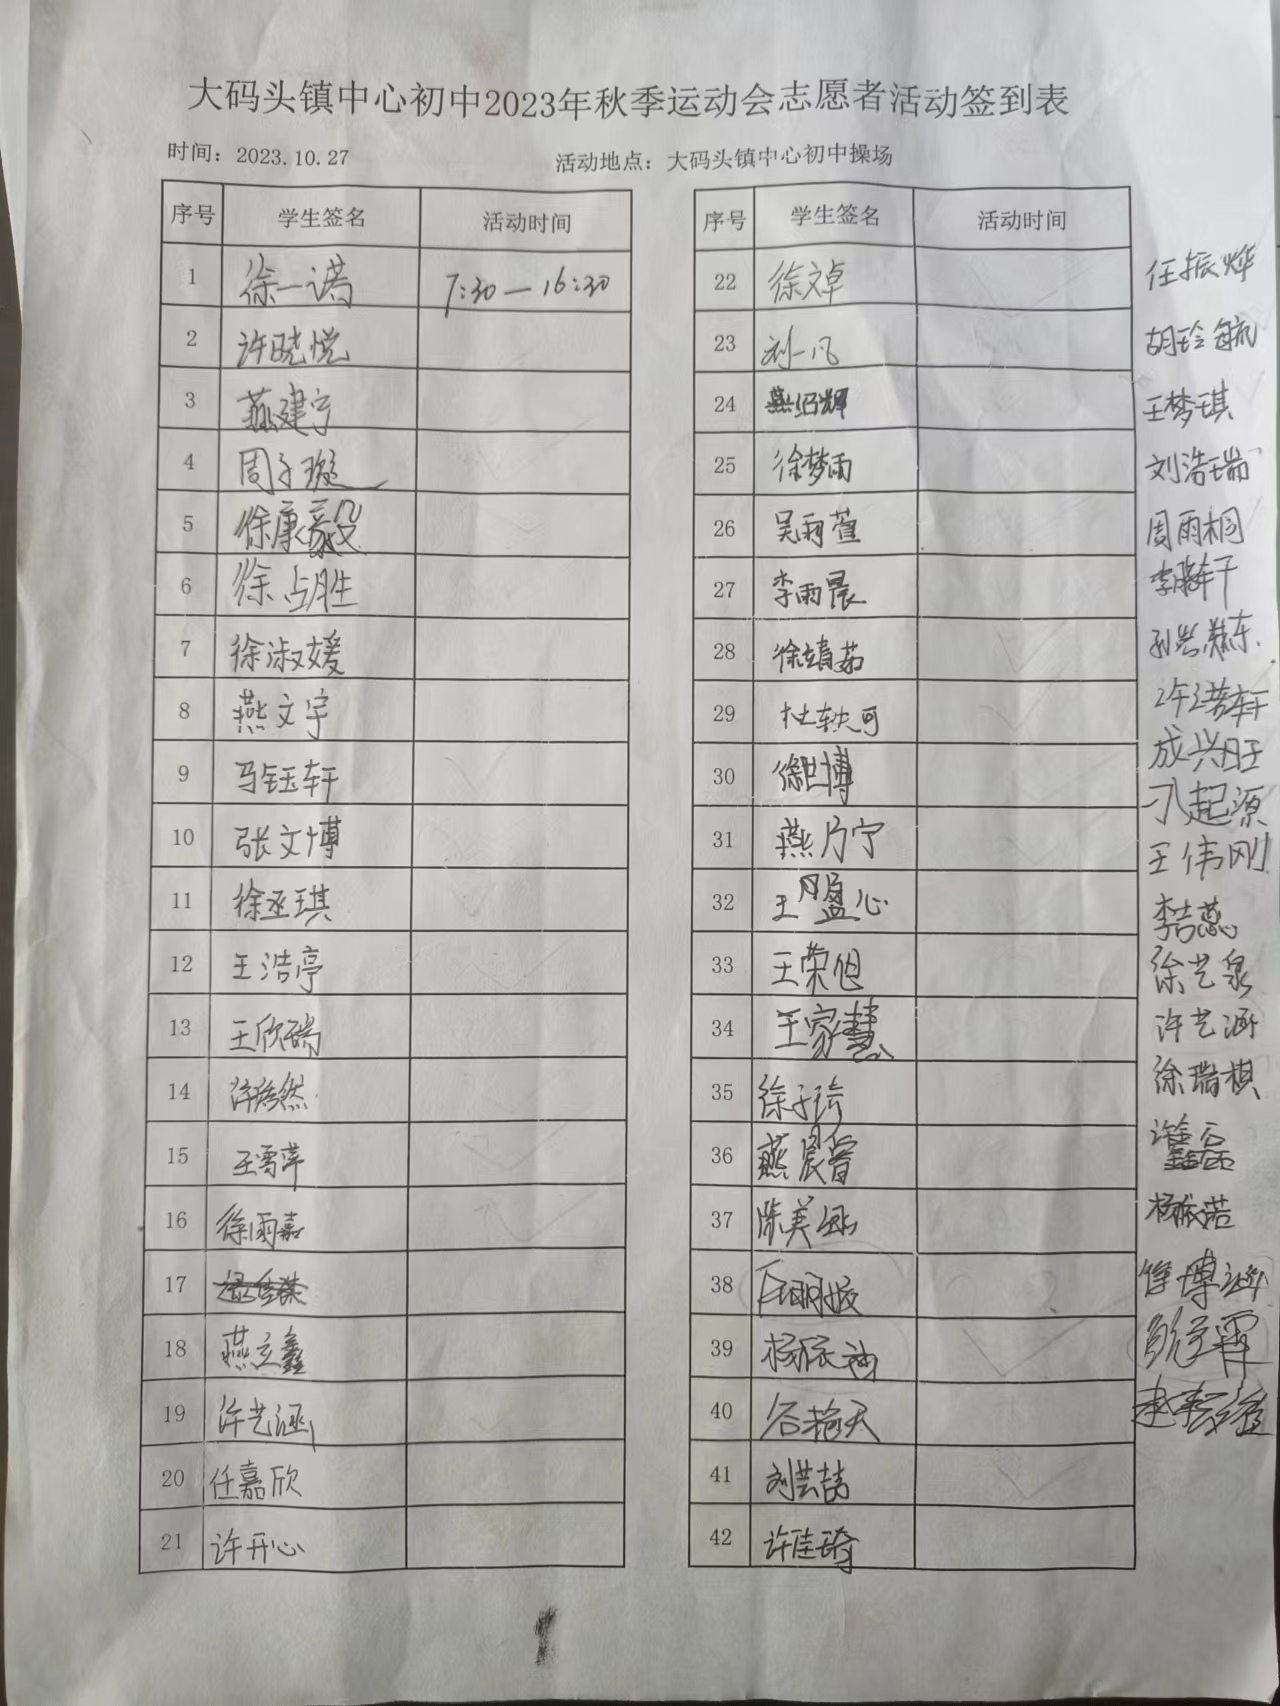 大码头镇中心初中2023年秋季运动会志愿者活动签到表
时间：2023.10.27 活动地点：大码头镇中心初中操场
序号 学生签名 活动时间
1 徐一诺 7:30—16:30
2 许晓悦
3 燕建宁
4 周子璇
5 徐康毅
6 徐占胜
7 徐淑媛
8 燕文宇
9 马钰轩
10 张文博
11 徐丞琪
12 王浩亭
13 王欣瑞
14
15 王雪萍
16 徐雨嘉
17
18 燕立鑫
19 许艺涵
20 任嘉欣
21 许开心
序号 学生签名 活动时间
22 徐文卓
23 刘一凡
24 燕绍辉
25 徐梦雨
26 吴雨萱
27 李雨晨
28 徐靖茹
29 杜轶可
30 徐世博
31 燕乃宁
32 王盟心
33 王荣但
34 王家慧
35 徐子琦
36 燕晨曾
37 陈美
38
39 杨依
40 谷艳天
41 刘芸喆
42 许佳琦
任振烨
胡玲毓
王梦琪
刘浩瑞
周雨桐
李腾轩
孙
成兴旺
刁起源
王伟刚
李吉蕊
徐艺泉
许艺涵
徐瑞棋
许鑫磊
杨依诺